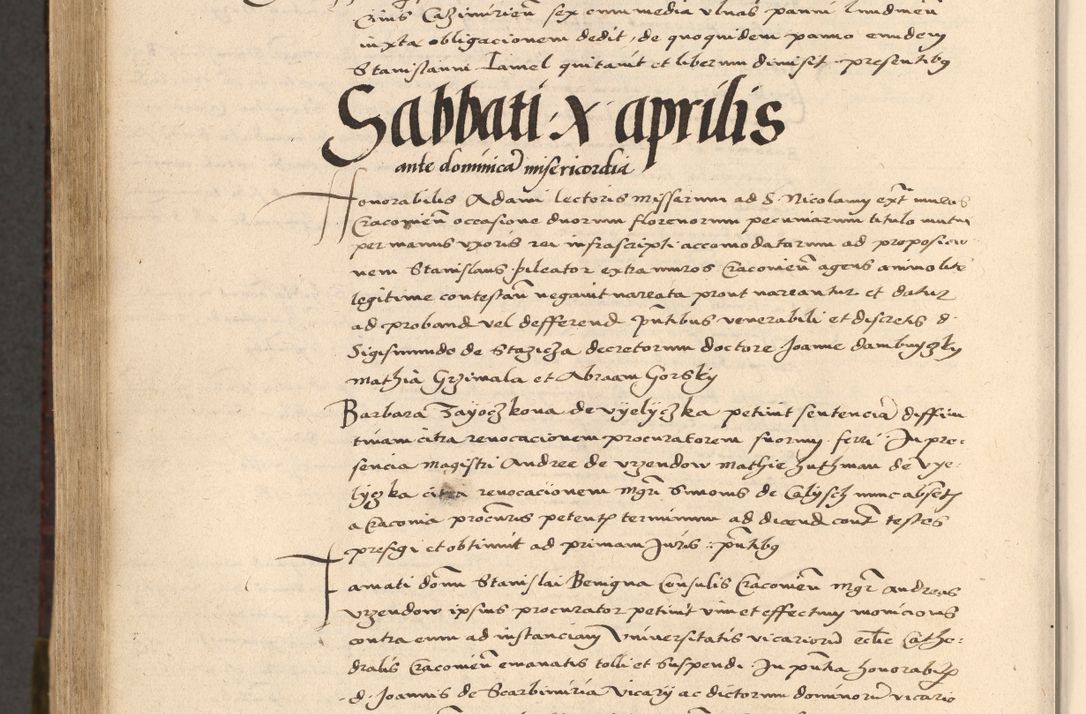 Civis Cazimirien sex cum media ulnas panni lundinen
iuxta obligacionem dedit, de quoquidem panno eundem
Stanislaum Iamel quitavit et liberum dimisit presentibus
Sabbati X aprilis
ante dominicam misericordia
Honorabilis Adami lectoris missarum ad S. Nicolaum ext muros
Cracovien occasione duorum florenorum pecuniarum titulo mutui
per manus uxoris rei infrascripti accomodatarum ad proposicio
nem Stanislaus pileator extra muros Cracovien agens animo lite
legitime contestan negavit narrata prout narrantur et datur
ad proband vel defferend pntibus venerabili et discretis d.
Sigismundo de Stazicza decretorum doctore Joanne Dambnyczky
Mathia Grzimala et Abraam Gorsky
Barbara Zayoczkova de Vyelyczka petiuit sentenciam diffini
tiuam citra revocacionem procuratorem suorum ferri In pre:
sencia Magistri Andree de Vrzendow Mathie huthman de Vye:
lyczka citra revocacionem mgri Simonis de Calysch nunc absentis
a Cracovia procuris petentis terminum ad dicend cont testes
prefigi et obtinuit ad primam Juris : pntibus
Famati domi Stanislai Benigna Consulis Cracovien mgr Andreas
Vrzendow ipsius procurator petiuit vim et effectum monicionis
contra eum ad instanciam Universitatis vicariorum eclie Cathe:
dralis Cracovien emanatis tolli et suspendi In pntia honorabilis
d. Joannis de Scarbimiria Vicarij ac dictorum dominorum vicario